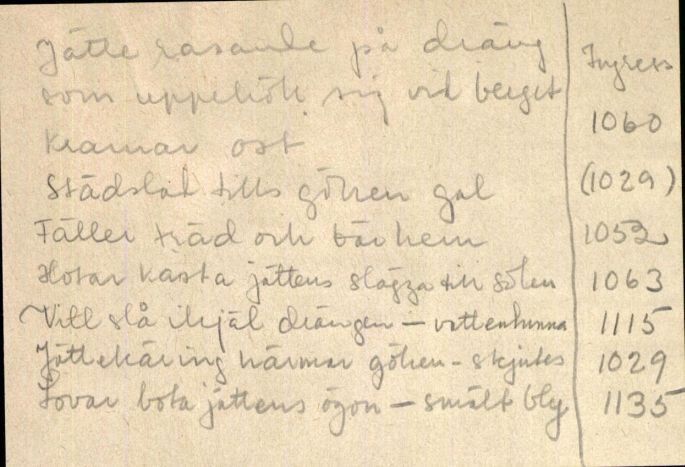 Jätte rasande på dräng
som uppehöll sig vid berget Ingress
Kramar ost 1060
Städslat tills göken gal (1029)
Fäller träd och bär hem 1052
Hotar kasta jättens slägga till solen 1063
Vill slå ihjäl drängen – vattenkunna 1115
Jättekäring härmar göken – skjutes 1029
Lovar bota jättens ögon – smält bly 1135